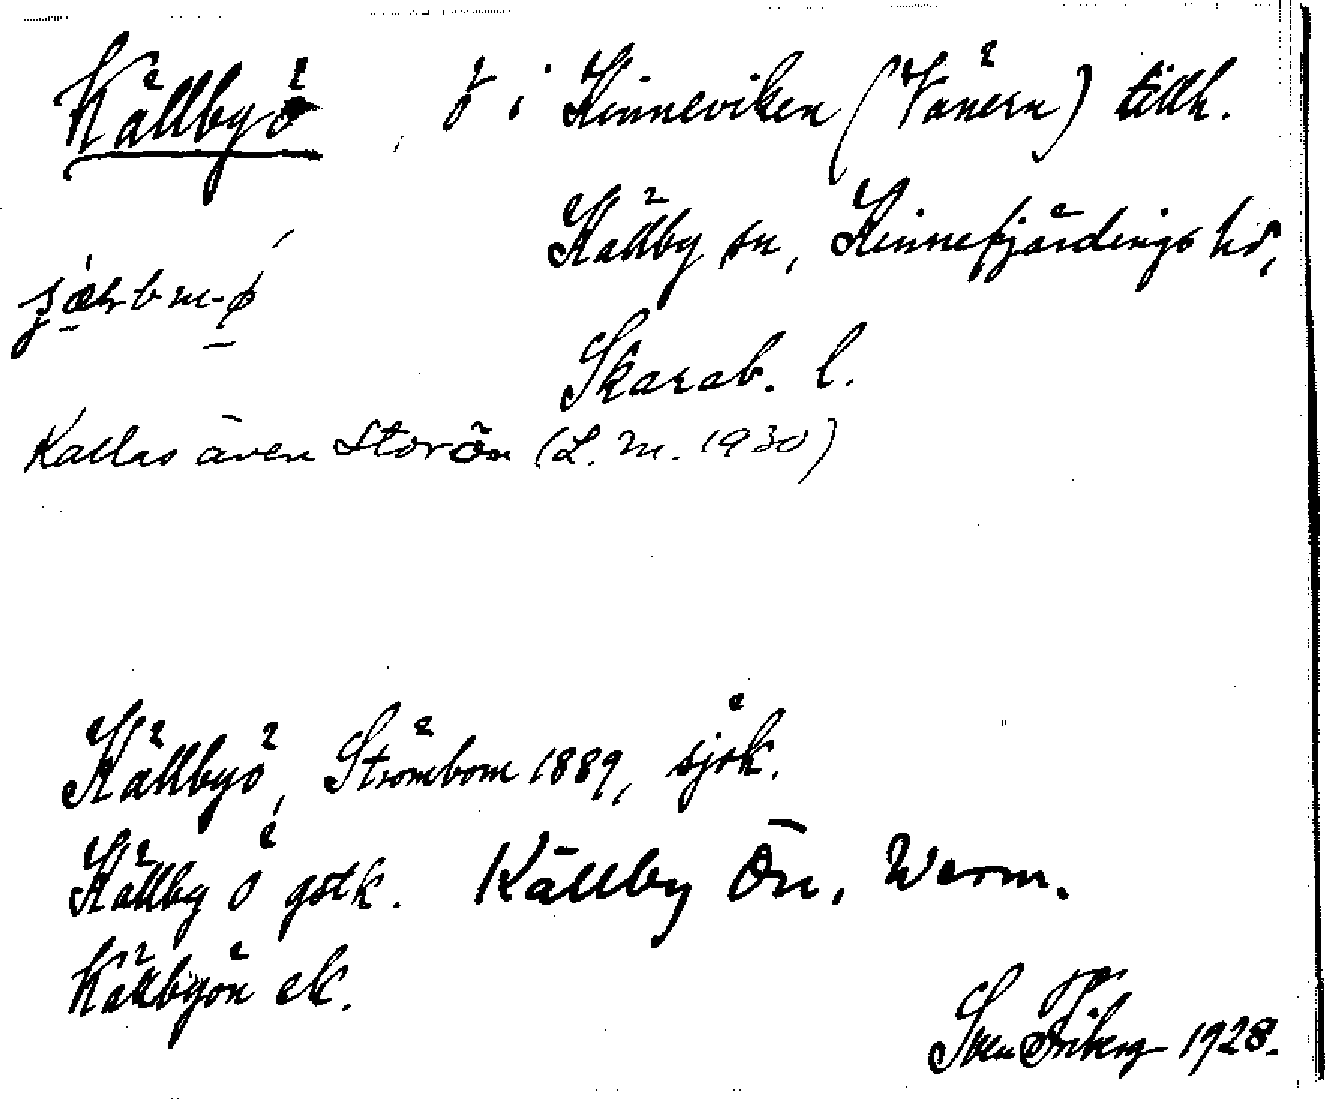 Källbyö, ö i Kinneviken (Vänern) tillh.
Källby sn, Kinnefjärdings hd,
Skarab. l.
Kallas även Storön (L.m. 1930)
Källbyö, Strömbom 1889, sjök.
Källby ö gstk. Källby Ön, Werm.
Källbyön ek.
Sven Friberg 1928.